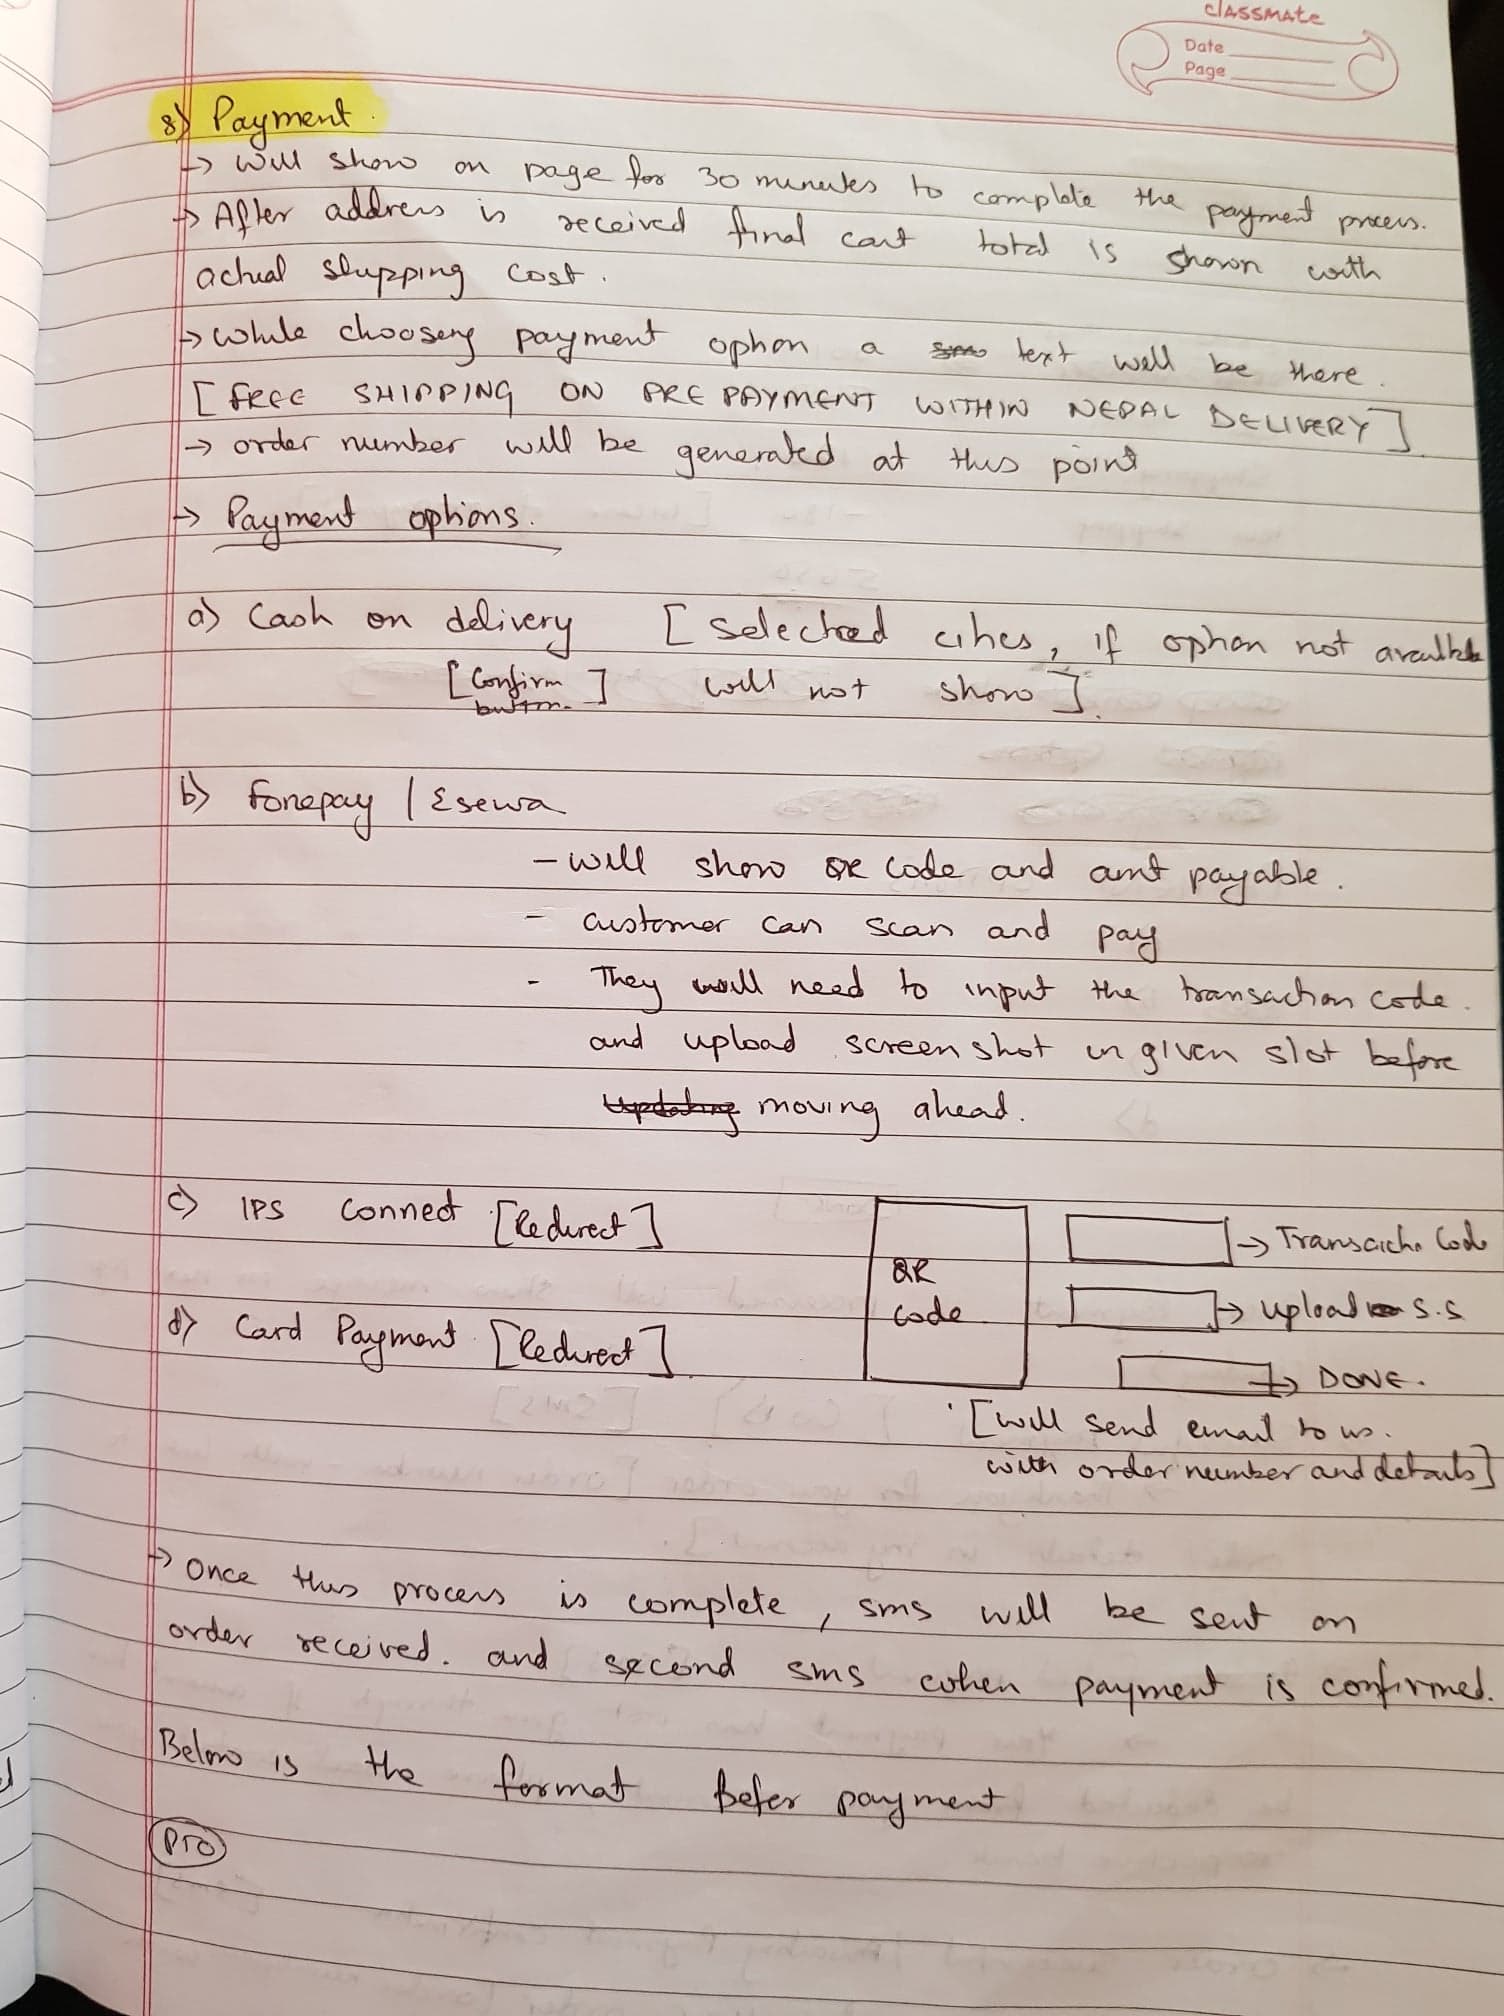 classmate
Date
Page
8) Payment.
→ Will show on page for 30 minutes to complete the payment process.
→ After address is received final cart total is shown with
actual shipping cost.
→ While choosing payment option a text will be there.
[FREE SHIPPING ON PRE PAYMENT WITHIN NEPAL DELIVERY]
→ order number will be generated at this point
→ Payment options.
a) Cash on delivery [selected cities, if option not available
[Confirm button] will not show].
b) Fonepay / Esewa
- will show QR code and amt payable.
- customer can scan and pay
- They will need to input the transaction code.
and upload screen shot in given slot before
Updating moving ahead.
c) IPS connect [Redirect]
QR
Code
→ Transactn Code
→ upload s.s
d) Card Payment [Redirect]
→ DONE.
[will send email to us.
with order number and details]
→ Once this process is complete, sms will be sent on
order received. and second sms when payment is confirmed.
Below is the format befer payment
Pro